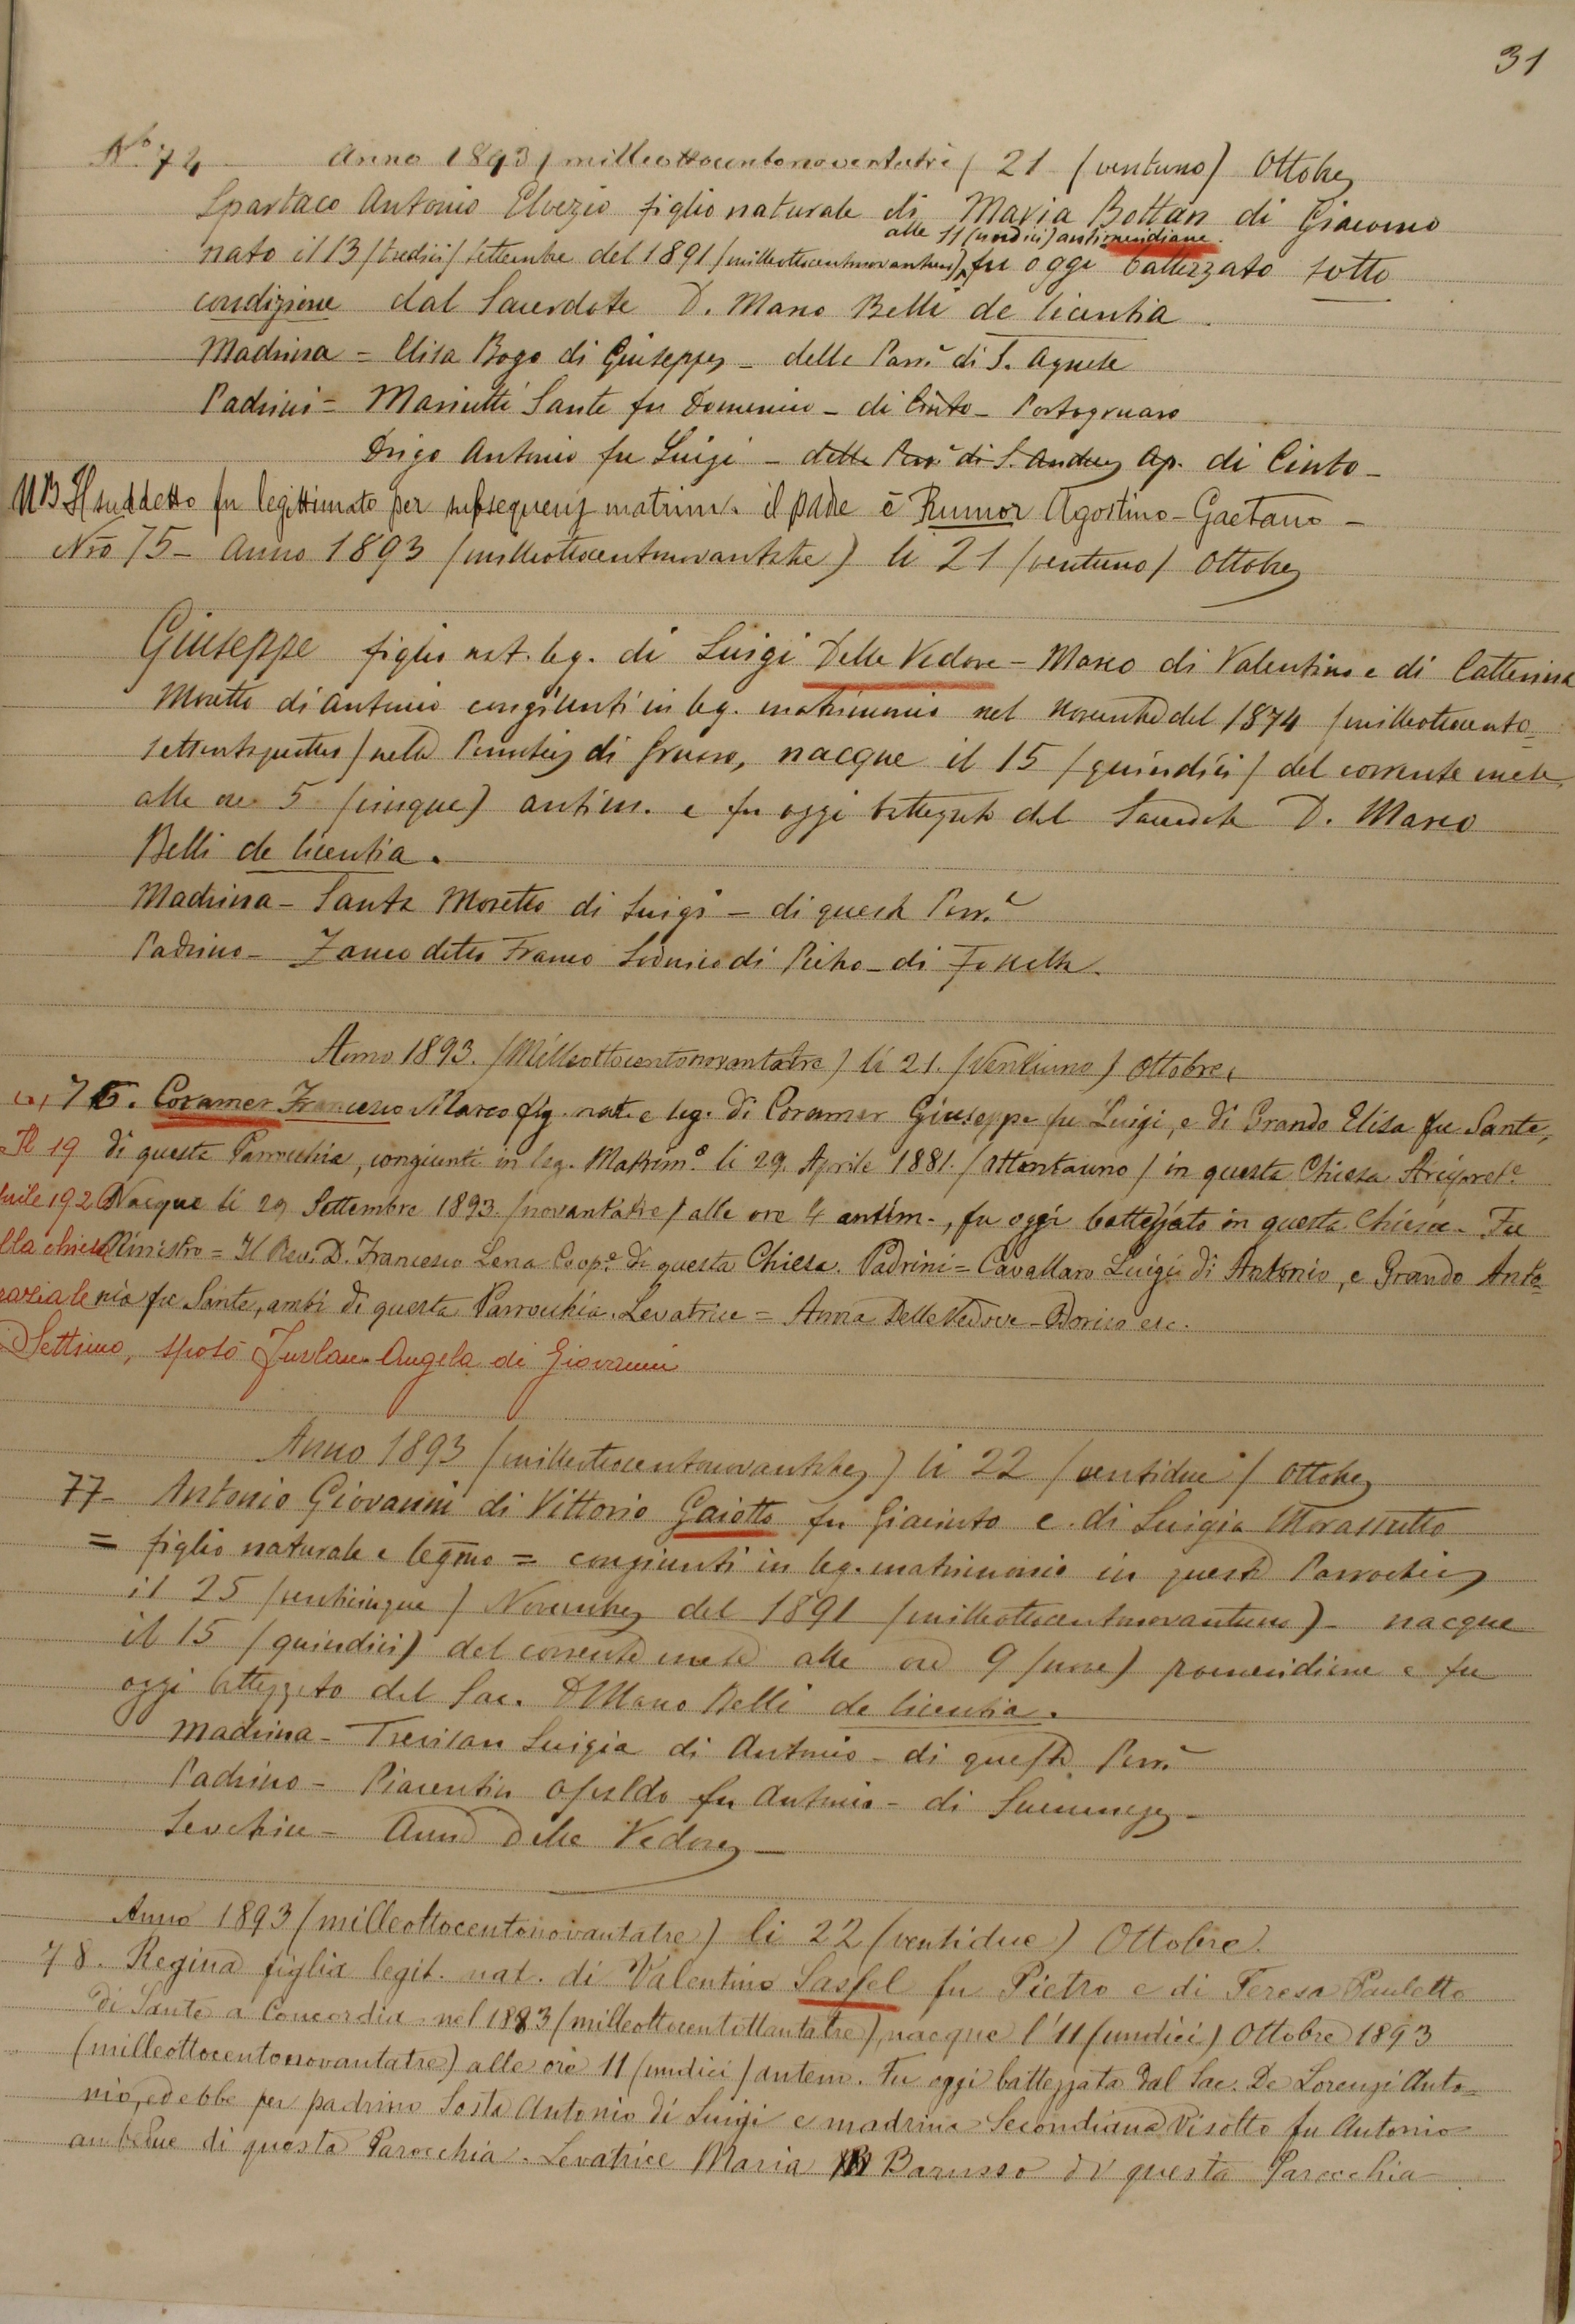 31
No 74 Anno 1893 / milleottocentonovantatrè / 21 (ventuno) Ottobre
Spartaco Antonio Elvezio figlio naturale di Maria Bottan di Giacomo
alle 11 (undici) antimeridiane.
nato il 13 / tredici / settembre del 1891 / milleottocentonovantuno), fu oggi battezzato sotto
condizione dal Sacerdote D. Marco Belli de licentia.
Madrina = Elisa Bogo di Giuseppe - della Parr.a di S. Agnese
Padrini = Marinetti Sante fu Domenico - di Cinto - Portogruaro
Drigo Antonio fu Luigi - della Parr.a di S. Andrea Ap. di Cinto -
NB Il suddetto fu legittimato per subsequens matrim. il padre è Rumor Agostino-Gaetano -
Nro 75 - Anno 1893 (milleottocentonovantatre) li 21 (ventuno) Ottobre
Giuseppe figlio nat. leg. di Luigi Delle Vedove - Marco di Valentino e di Catterina
Moretto di Antonio congiunti in leg. matrimonio nel novembre del 1874 (milleottocento=
settantaquattro) nella Parrocchia di Gruaro, nacque il 15 (quindici) del corrente mese
alle ore 5 (cinque) antim. e fu oggi battezzato dal Sacerdote D. Marco
Belli de licentia.
Madrina - Santa Moretto di Luigi - di questa Parr.a
Padrino - Zanco detto Franco Lodovico di Pietro - di
Anno 1893. (Milleottocentonovantatre) li 21. (Ventiuno) Ottobre,
76. Coramer Francesco Marco fig. nat. e leg. di Coramer Giuseppe fu Luigi, e di Grando Elisa fu Sante,
Il 19 di questa Parrocchia, congiunti in leg. Matrim.o li 29. Aprile 1881. (Ottantauno) in questa Chiesa Arcipret.e
1920 Nacque li 29 Settembre 1893. (novantatre) alle ore 4 antim., fu oggi battezzato in questa Chiesa. Fu
lla chiesa Ministro = Il Rev. D. Francesco Lena Coop.e di questa Chiesa. Padrini = Cavallaro Luigi di Antonio, e Grando Anto=
nio fu Sante, ambi di questa Parrocchia. Levatrice = Anna Delle Vedove - Dorico ecc.
Settimo, sposò Furlan Angela di Giovanni
Anno 1893 (milleottocentonovantatre) li 22 (ventidue) Ottobre
77 - Antonio Giovanni di Vittorio Gaiotto fu Giacinto e di Luigia Morassutto
= figlio naturale e legmo = congiunti in leg. matrimonio in questa Parrocchia
il 25 (venticinque) Novembre del 1891 (milleottocentonovantuno) - nacque
il 15 (quindici) del corrente mese alle ore 9 (nove) pomeridiane e fu
oggi battezzato dal Sac. D Marco Belli de licentia.
Madrina - Trevisan Luigia di Antonio - di questa Parr.a
Padrino - Piacentin Osvaldo fu Antonio - di Summaga -
Levatrice - Anna Delle Vedove -
Anno 1893 (milleottocentonovantatre) li 22 (ventidue) Ottobre.
78. Regina figlia legit. nat. di Valentino Sassel fu Pietro e di Teresa Pauletto
di Sante a Concordia nel 1883 (milleottocentottantatre), nacque l'11 (undici) Ottobre 1893
(milleottocentonovantatre) alle ore 11 (undici) antem. Fu oggi battezzata dal Sac. De Lorenzi Anto=
nio, ed ebbe per padrino Sosta Antonio di Luigi e madrina Secondiana Visotto fu Antonio
ambedue di questa Parocchia. Levatrice Maria Barusso di questa Parocchia